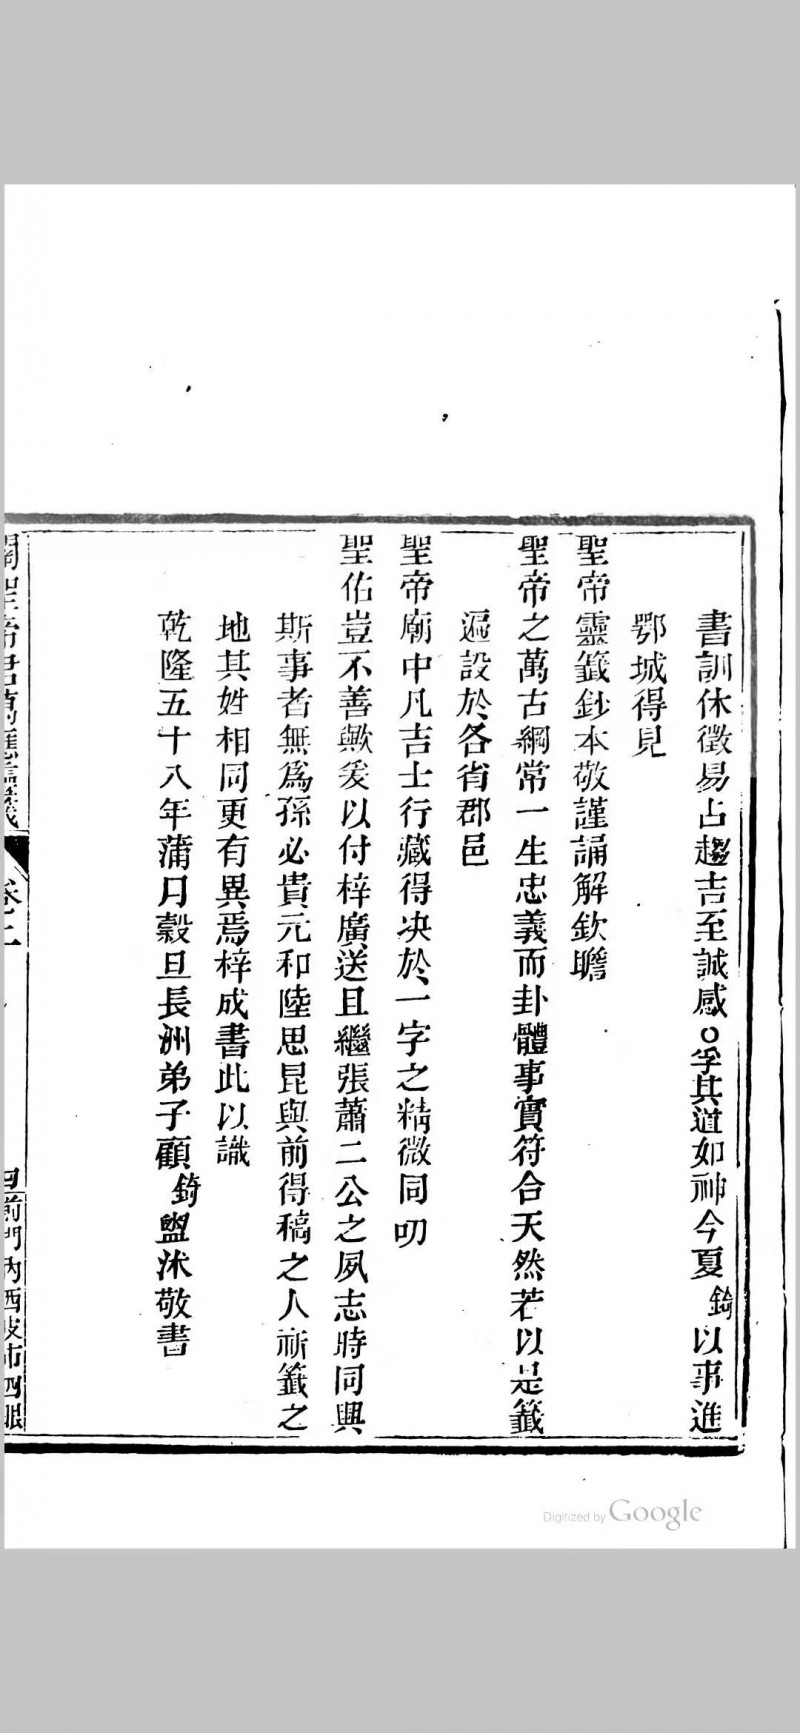 書訓休徵易占趨吉至誠感○孚其道如神今夏錡以事進
鄂城得見
聖帝靈籤鈔本敬謹誦解欽瞻
聖帝之萬古綱常一生忠義而卦體事實符合天然若以是籤
遍設於各省郡邑
聖帝廟中凡吉士行藏得决於一字之精微同叨
聖佑豈不善歟爰以付梓廣送且繼張蕭二公之夙志時同興
斯事者無為孫必貴元和陸思昆與前得稿之人祈籤之
地其姓相同更有異焉梓成書此以識
乾隆五十八年蒲月穀旦長洲弟子顧錡盥沐敬書
Digitized by Google